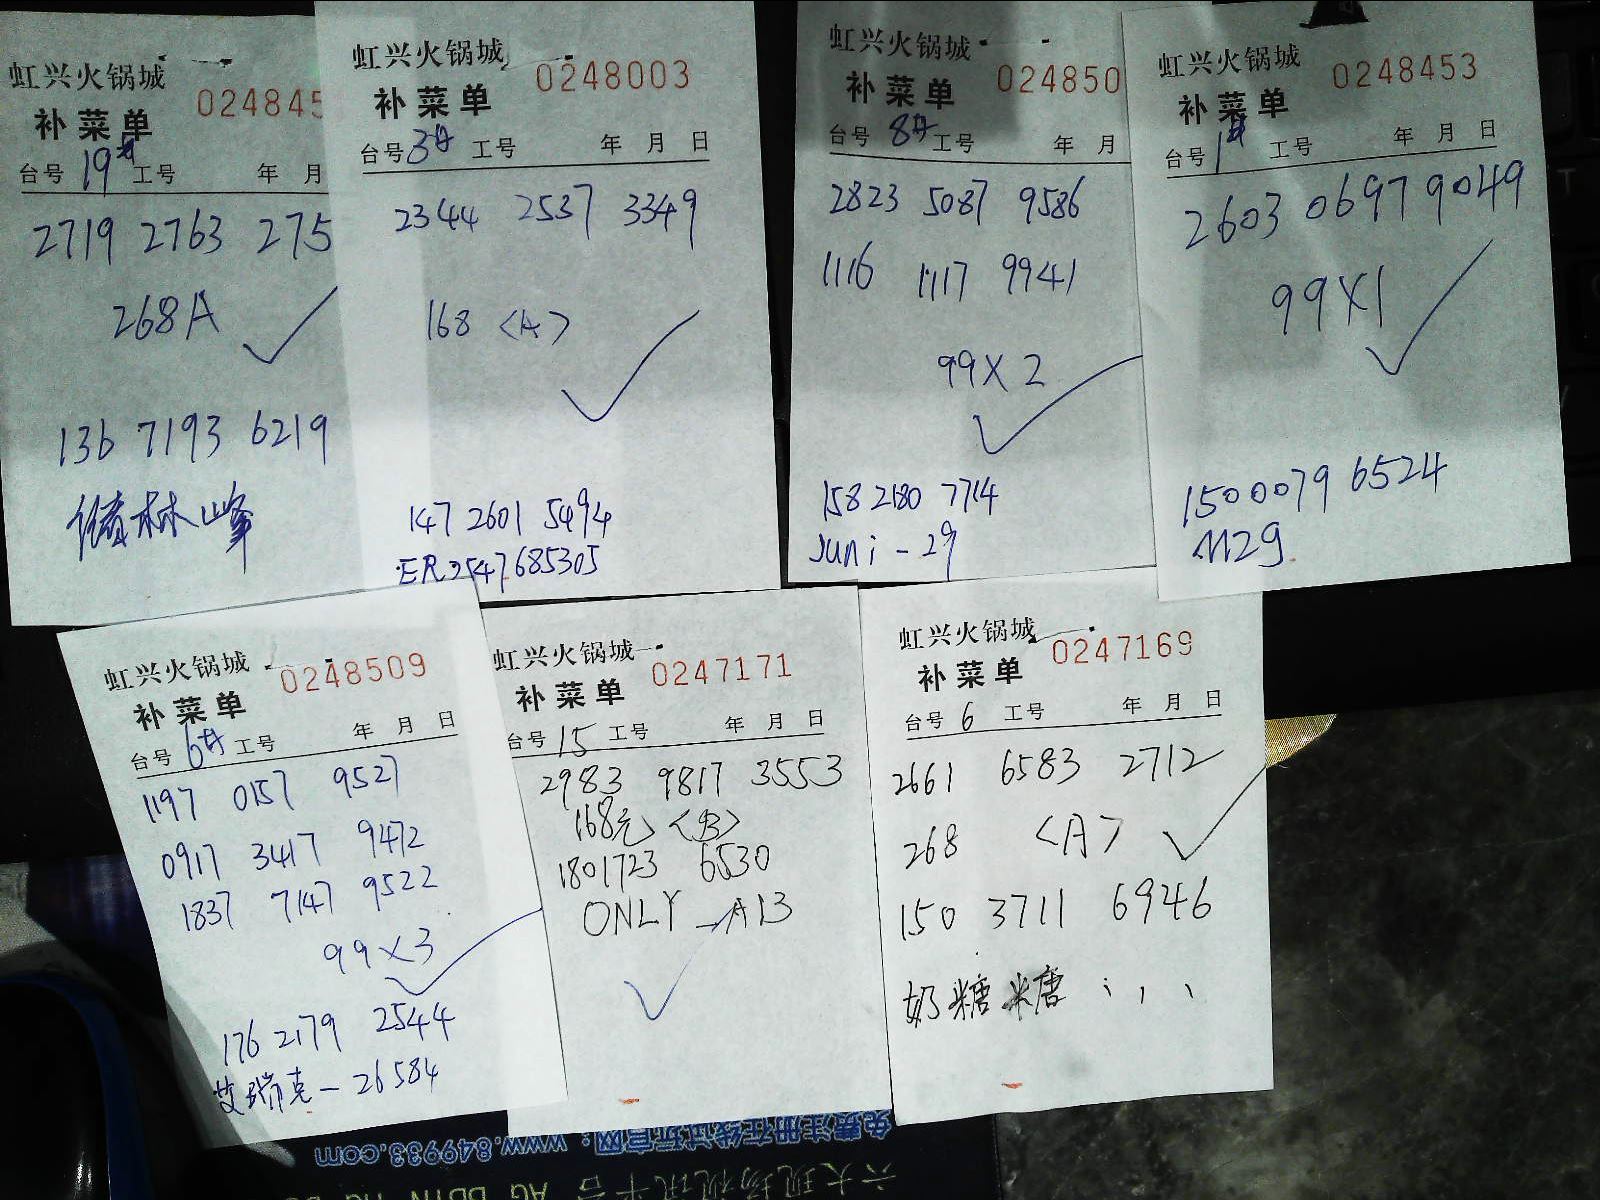 虹兴火锅城
024845
补菜单
台号 19# 工号 年 月
2719 2763 275
268A
136 7193 6219
林峰
虹兴火锅城
0248003
补菜单
台号 3# 工号 年 月 日
2344 2537 3349
168 <A>
147 2601 5494
虹兴火锅城
024850
补菜单
台号 8# 工号 年 月
2823 5087 9586
1116 1117 9941
99X2
158 2180 7714
Juni-29
虹兴火锅城
0248453
补菜单
台号 1# 工号 年 月 日
2603 0697 9049
99X1
1500079 6524
1129
虹兴火锅城
0248509
补菜单
台号 6# 工号 年 月 日
1197 0157 9527
0917 3417 9472
1837 7147 9522
99X3
176 2179 2544
艾瑞克-26584
虹兴火锅城
0247171
补菜单
台号 15 工号 年 月 日
2983 9817 3553
168元 <B>
1801723 6530
ONLY A13
虹兴火锅城
0247169
补菜单
台号 6 工号 年 月 日
2661 6583 2712
268 <A>
150 3711 6946
奶糖糖
免费注册在线试玩官网：www.849933.com
六大现场视讯平台 AG BBIN